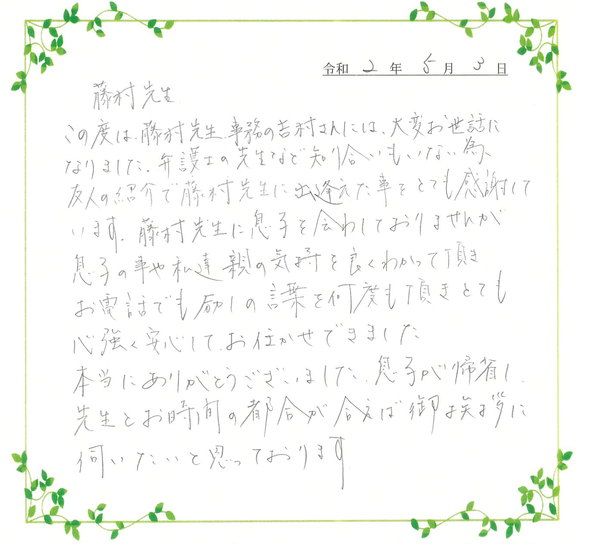 令和 2 年 5 月 3 日
藤村先生
この度は、藤村先生、事務の吉村さんには、大変お世話に
なりました。弁護士の先生など知り合いもいない為、
友人の紹介で藤村先生に出逢えた事をとても感謝して
います。藤村先生に息子を会わしておりませんが
息子の事や私達親の気持を良くわかって頂き
お電話でも励しの言葉を何度も頂きとても
心強く安心して、お任かせできました
本当にありがとうございました。息子が帰省し
先生とお時間の都合が合えば御挨拶に
伺いたいと思っております